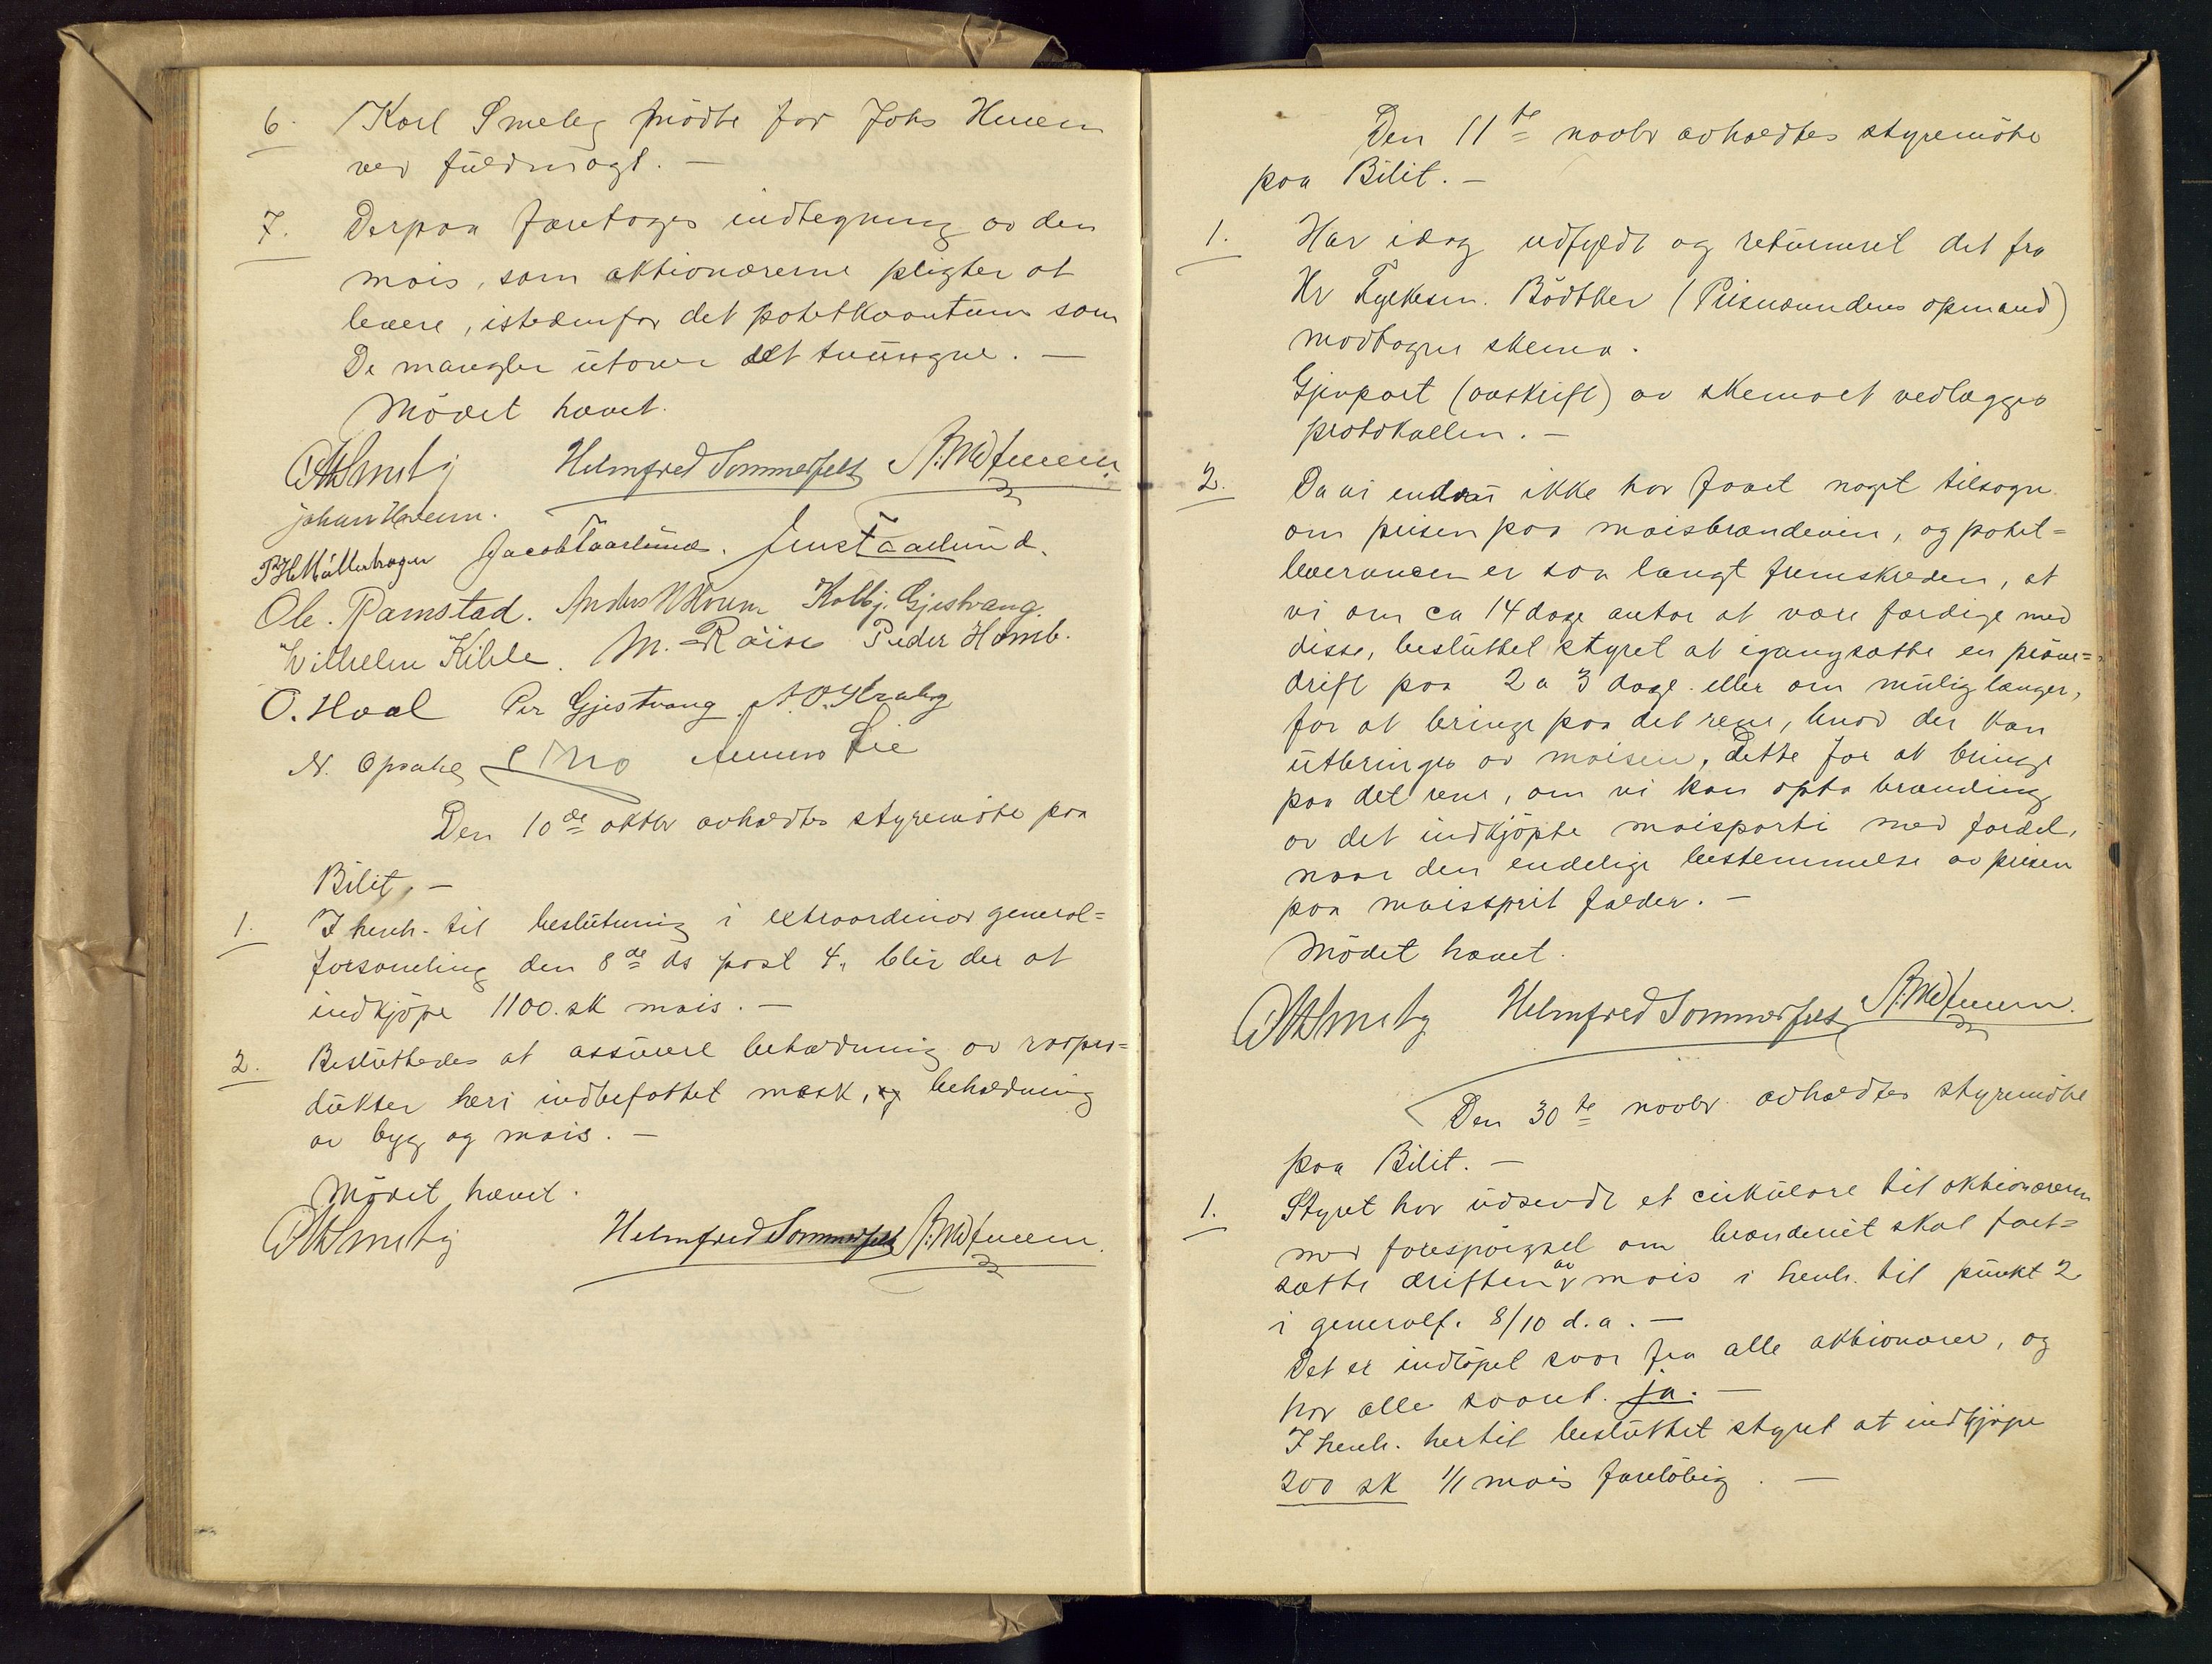 6. Karl Smeby mödte for Johs Hveem
ved fuldmagt. —
7. Derpaa foretages indtegning av den
mais, som aktionærerne pligter at
levere, istedenfor det potetkvantum som
De mangler utover det tvungne. —
Mödet hævet.
Helmfred Sommerfelt
Johan Hveem.
Jacob Taarlund. Jens Taarlund.
Ole. Ramstad. Anders Hveem Kolbj. Gjestvang.
Wilhelm Kihle. M. Röise Peder Homb.
O. Hoel Per Gjestvang
N. Opsahl Lie
Den 10de oktbr avholdtes styremöte paa
Bilit. —
1. I henh. til beslutning i extraordinær general=
forsamling den 8de ds post 4, blir der at
indkjöpe 1100 sk mais. —
2. Besluttedes at assurere beholdning av raapro=
dukter heri indbefattet mask, og beholdning
av byg og mais. —
Mödet hævet.
Helmfred Sommerfelt
Den 11te novbr avholdtes styremöte
paa Bilit. —
1. Har idag udfyldt og returneret det fra
Hr Fylkesm. Bödtker (Prisnævndens opmand)
modtagne skema.
Gjenpart (avskrift) av skemaet vedlægges
protokollen. —
2. Da vi endnu ikke har faaet noget tilsagn
om prisen paa maisbrændevin, og potet=
leverancen er saa langt fremskreden, at
vi om ca 14 dage antar at være færdige med
disse, besluttet styret at igangsætte en pröve=
drift paa 2 a 3 dage eller om mulig længer,
for at bringe paa det rene, hvad der kan
utbringes av maisen, dette for at bringe
paa det rene, om vi kan opta brænding
av det indkjöpte maisparti med fordel,
naar den endelige bestemmelse av prisen
paa maissprit falder. —
Mödet hævet.
Helmfred Sommerfelt
Den 30te novbr avholdtes styremöte
paa Bilit. —
1. Styret har udsendt et cirkulære til aktionærern
med forespörgsel om brænderiet skal fort=
sætte driften av mais i henh. til punkt 2
i generalf. 8/10 d.a. —
Det er indlöpet svar fra alle aktionærer, og
har alle svaret ja. —
I henh. hertil besluttet styret at indkjöpe
200 sk 1/1 mais forelöbig. —